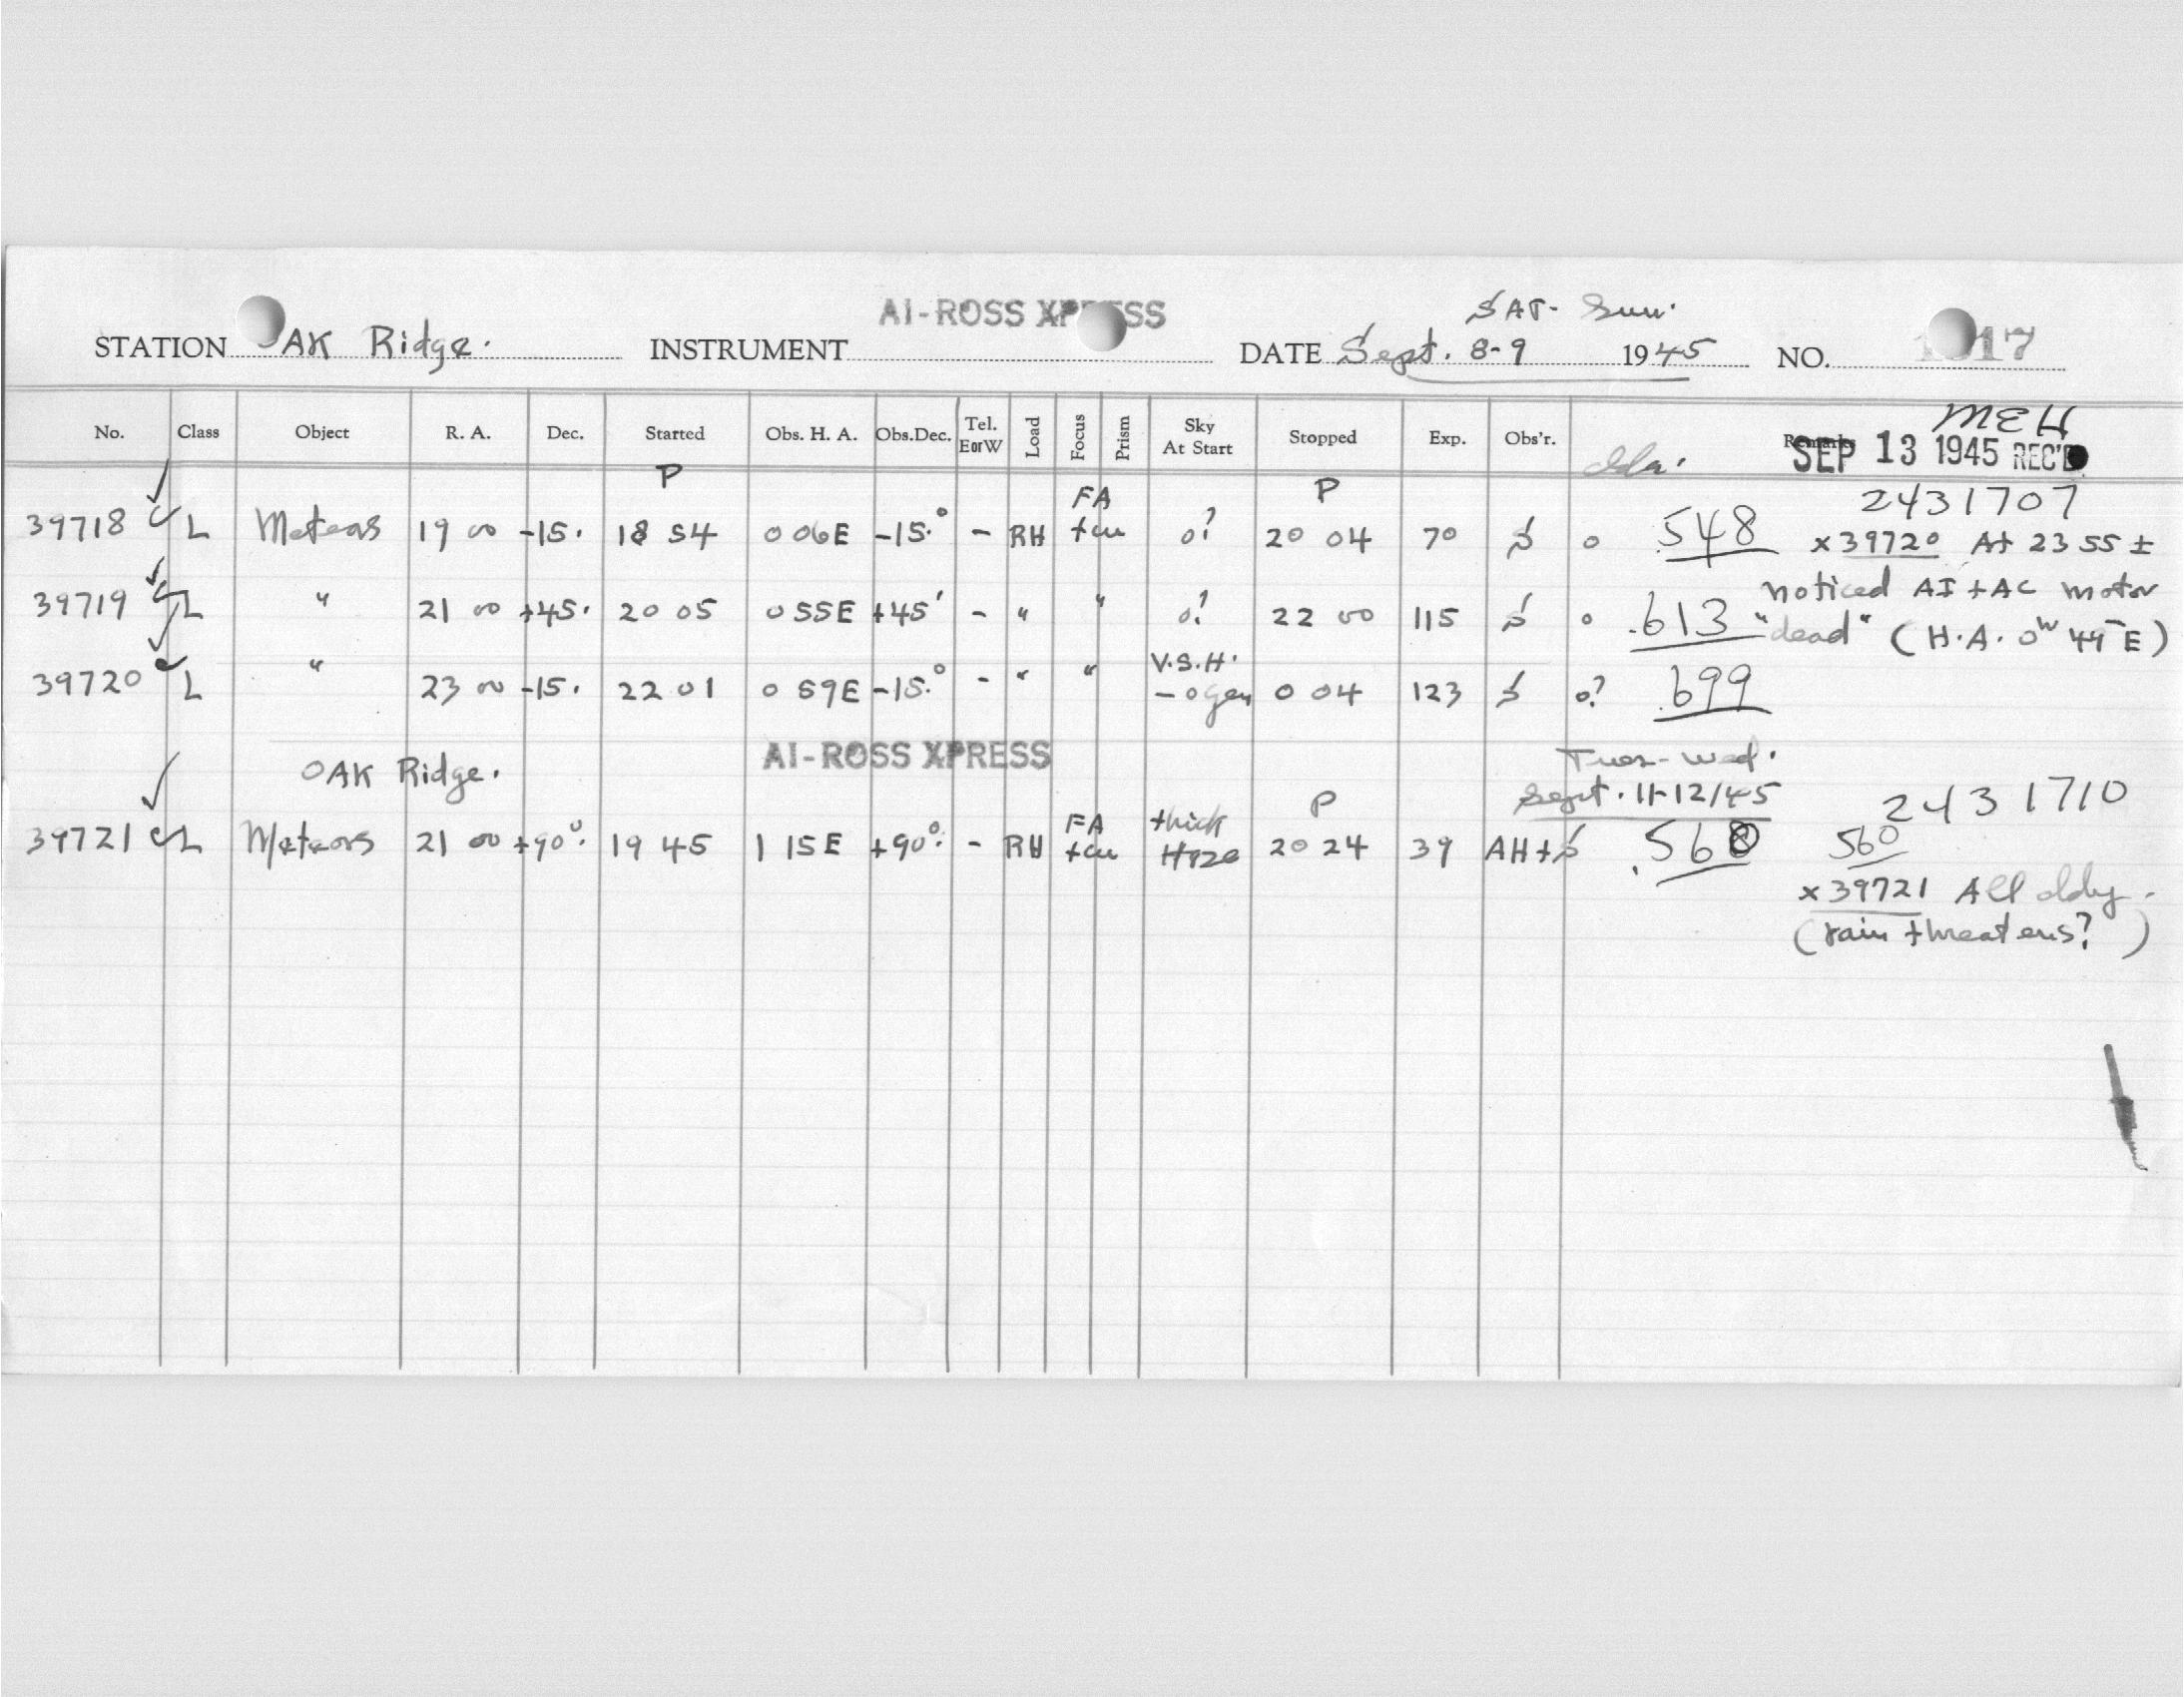 AI-ROSS XPRESS
SAT- Sun.
STATION OAK Ridge. INSTRUMENT DATE Sept. 8-9 1945 NO. 17
MEH
No. Class Object R. A. Dec. Started Obs. H. A. Obs.Dec. Tel. E or W Load Focus Prism Sky At Start Stopped Exp. Obs'r. Remarks
SEP 13 1945 REC'D
P P 2431707
39718 L Meteors 19 00 -15. 18 54 0 06E -15.° - RH FA +cu o? 20 04 70 S o .548 x39720 At 23 55 ±
39719 L " 21 00 +45. 20 05 0 55E +45° - " " o? 22 00 115 S o .613 noticed AI + AC motor
"dead" (H.A. 0 49 E)
39720 L " 23 00 -15. 22 01 0 59E -15.° - " " V.S.H. - o gen 0 04 123 S o? .699
OAK Ridge. AI-ROSS XPRESS Tues- Wed.
Sept. 11-12/45 2431710
P
39721 L Meteors 21 00 +90°. 19 45 1 15E +90°. - RH FA +cu thick Haze 20 24 39 AH+S .560 560
x39721 All cldy.
(rain threatens?)